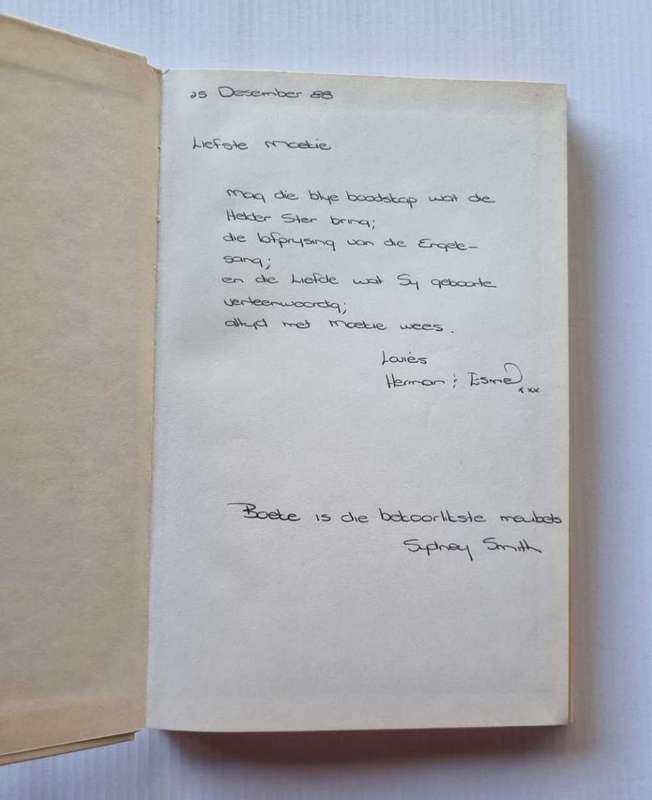 25 Desember 88
Liefste Moekie
Mag die blye boodskap wat die
Helder Ster bring;
die lofprysing van die Engele-
sang;
en die Liefde wat Sy geboorte
verteenwoordig;
altyd met Moekie wees.
Herman & Esmé xxx
Boeke is die bekoorlikste meubels
Sydney Smith